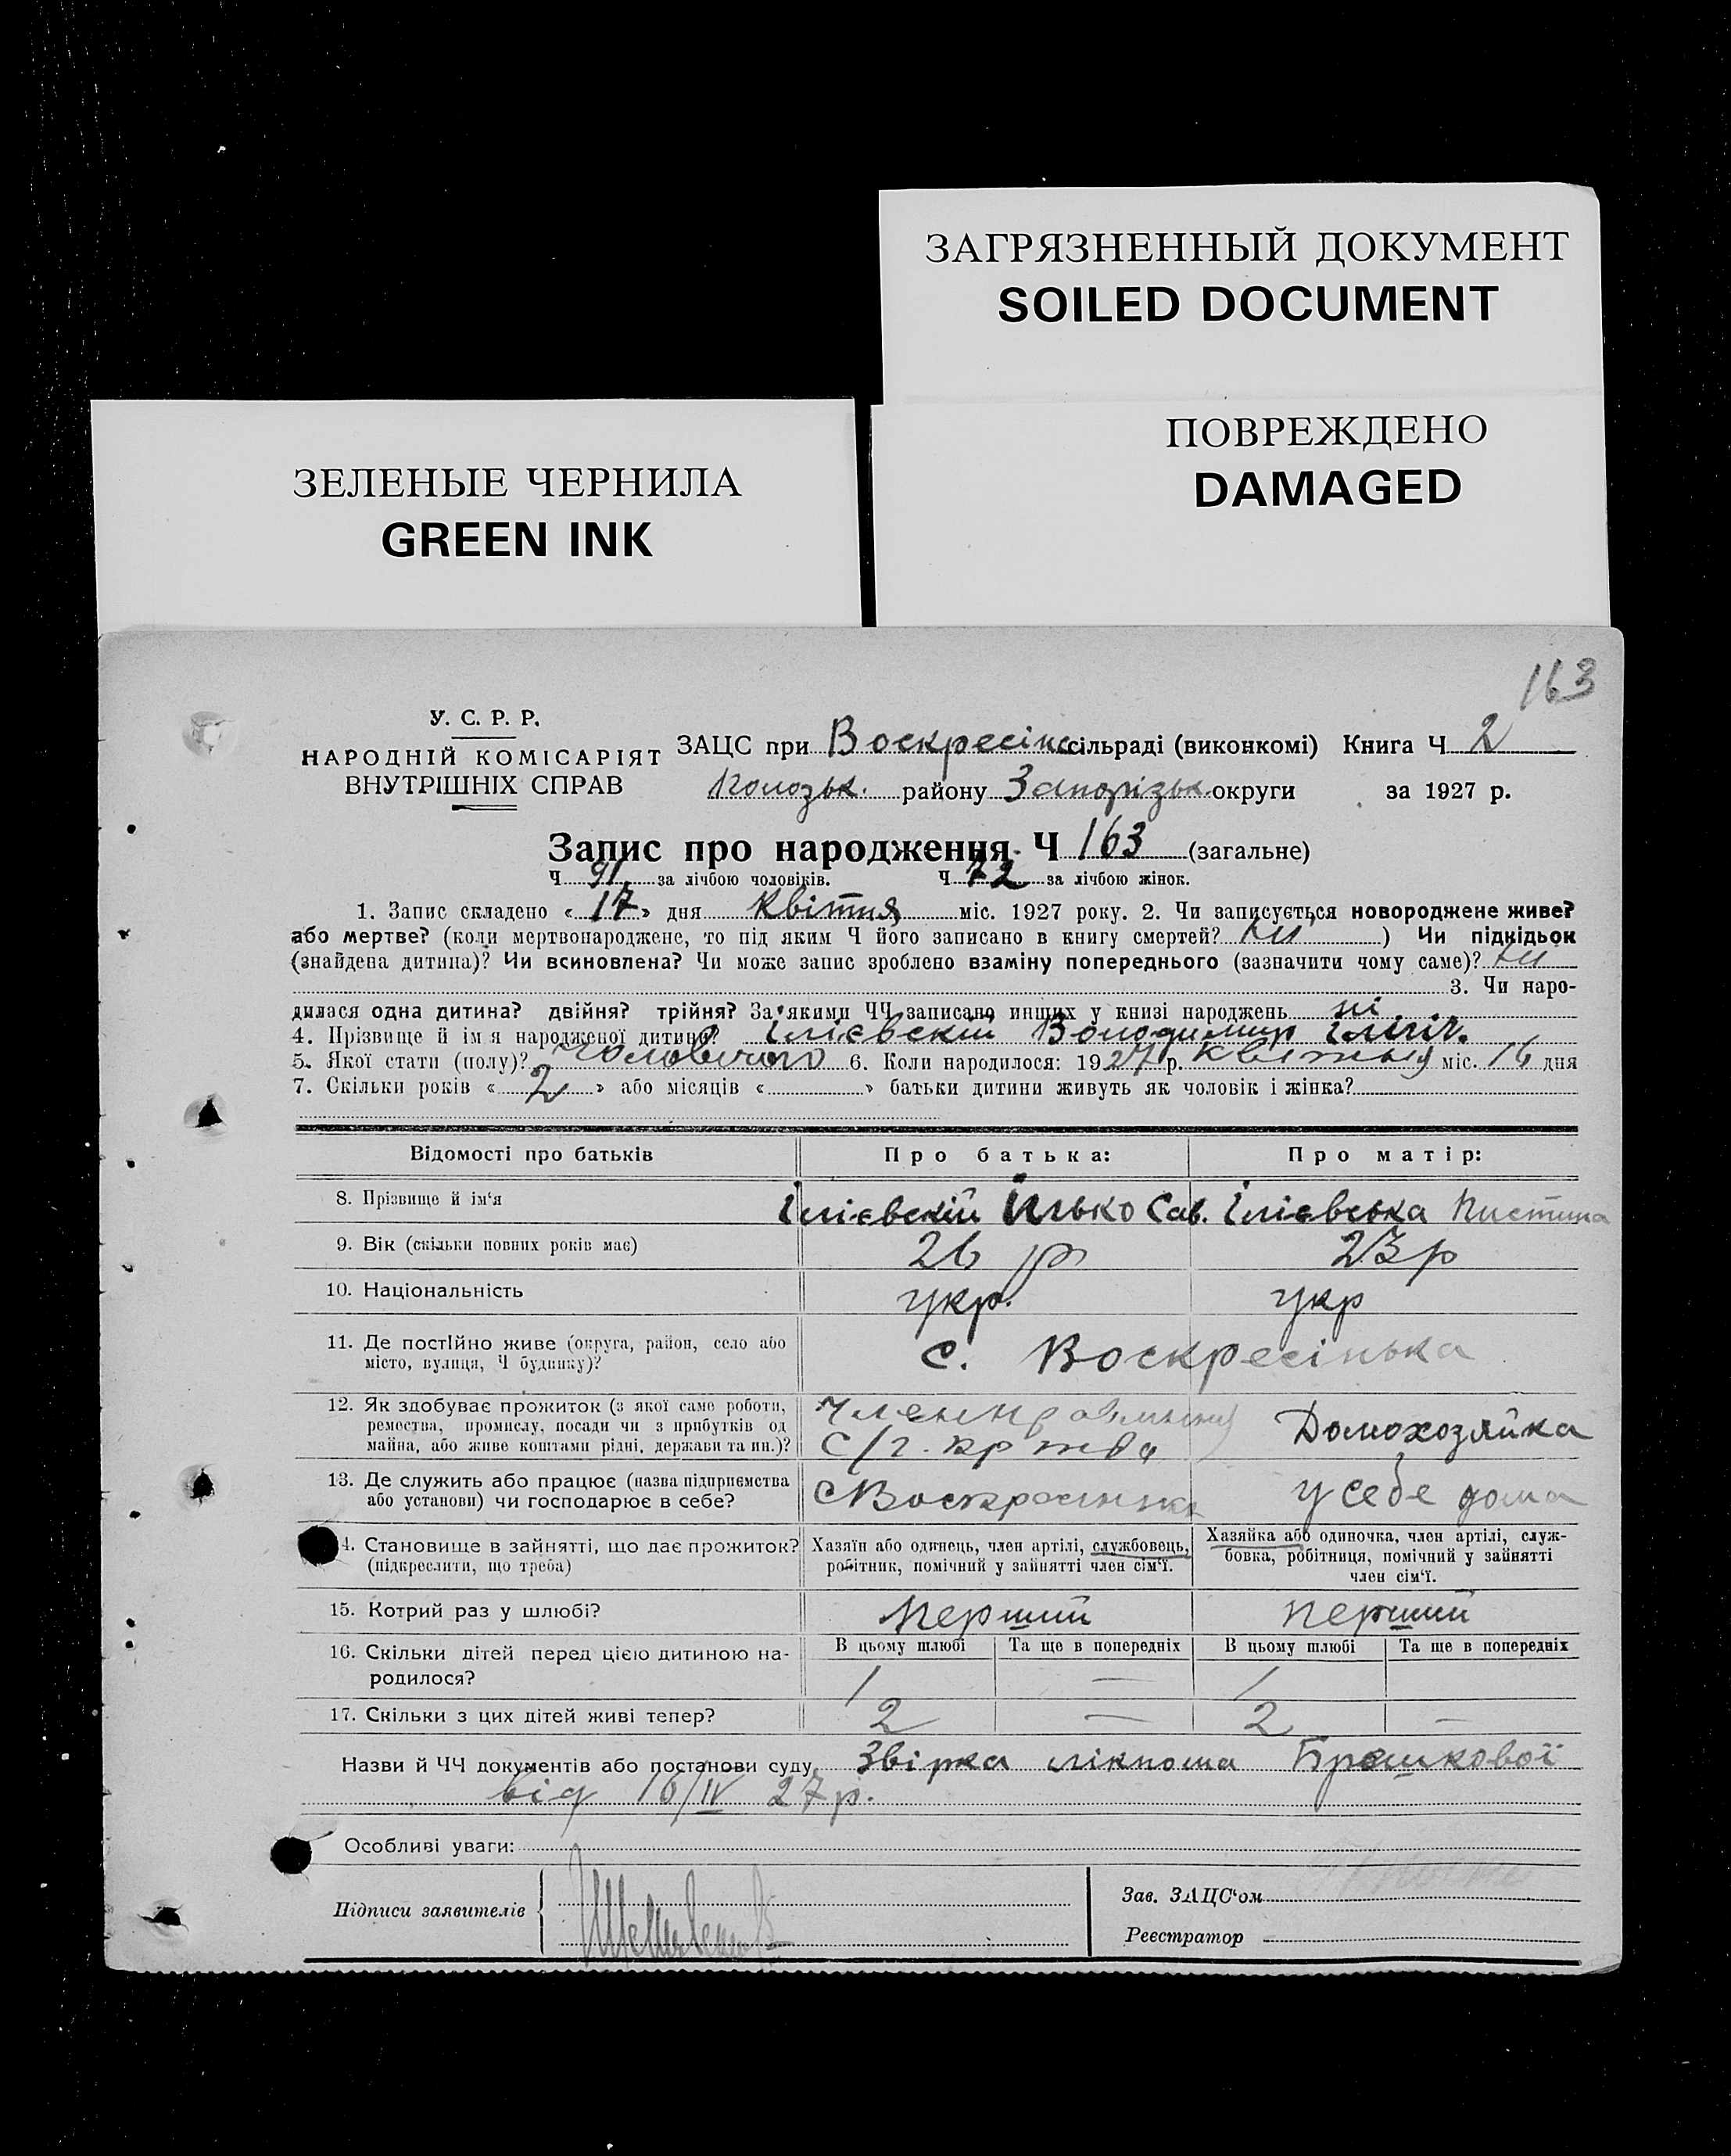 ЗАГРЯЗНЕННЫЙ ДОКУМЕНТ
SOILED DOCUMENT
ПОВРЕЖДЕНО
DAMAGED
ЗЕЛЕНЫЕ ЧЕРНИЛА
GREEN INK
163
У. С. Р. Р.
НАРОДНІЙ КОМІСАРІЯТ
ВНУТРІШНІХ СПРАВ
ЗАЦС при Воскресінс сільраді (виконкомі) Книга Ч 2
району Запорізьк. округи за 1927 р.
Запис про народження Ч 163 (загальне)
Ч 91 за лічбою чоловіків. Ч 72 за лічбою жінок.
1. Запис складено « 17 » дня Квітня міс. 1927 року. 2. Чи записується новороджене живе?
або мертве? (коли мертвонароджене, то під яким Ч його записано в книгу смертей? ні ) Чи підкідьок
(знайдена дитина)? Чи всиновлена? Чи може запис зроблено взаміну попереднього (зазначити чому саме)? ні
3. Чи наро-
дилася одна дитина? двійня? трійня? За якими ЧЧ записано инших у книзі народжень ні
4. Прізвище й ім'я народженої дитини? Ілієвскій Володимир Ілліч.
5. Якої стати (полу)? чоловічого 6. Коли народилося: 1927 р. квітныя міс. 16 дня
7. Скільки років « 2 » або місяців « » батьки дитини живуть як чоловік і жінка?
Відомості про батьків Про батька: Про матір:
8. Прізвище й ім'я Ілієвскій Ілько Сав. Ілієвська Пистина
9. Вік (скільки повних років має) 26 р 23 р
10. Національність укр. укр
11. Де постійно живе (округа, район, село або
місто, вулиця, Ч будинку)? с. Воскресінька
12. Як здобуває прожиток (з якої саме роботи,
ремества, промислу, посади чи з прибутків од
майна, або живе коштами рідні, держави та ин.)? Член правління
с/г. кр тва Домохозяйка
13. Де служить або працює (назва підприємства
або установи) чи господарює в себе? С Воскресинка у себе дома
14. Становище в зайнятті, що дає прожиток?
(підкреслити, що треба)
Хазяїн або одинець, член артілі, службовець,
робітник, помічний у зайнятті член сім'ї.
Хазяйка або одиночка, член артілі, служ-
бовка, робітниця, помічний у зайнятті
член сім'ї.
15. Котрий раз у шлюбі? перший перший
16. Скільки дітей перед цією дитиною на-
родилося?
В цьому шлюбі Та ще в попередніх В цьому шлюбі Та ще в попередніх
1 — 1
17. Скільки з цих дітей живі тепер? 2 — 2 —
Назви й ЧЧ документів або постанови суду Звірка лікпома Брошкової
від 16/IV 27 р.
Особливі уваги:
Підписи заявителів
Зав. ЗАЦС'ом
Реєстратор